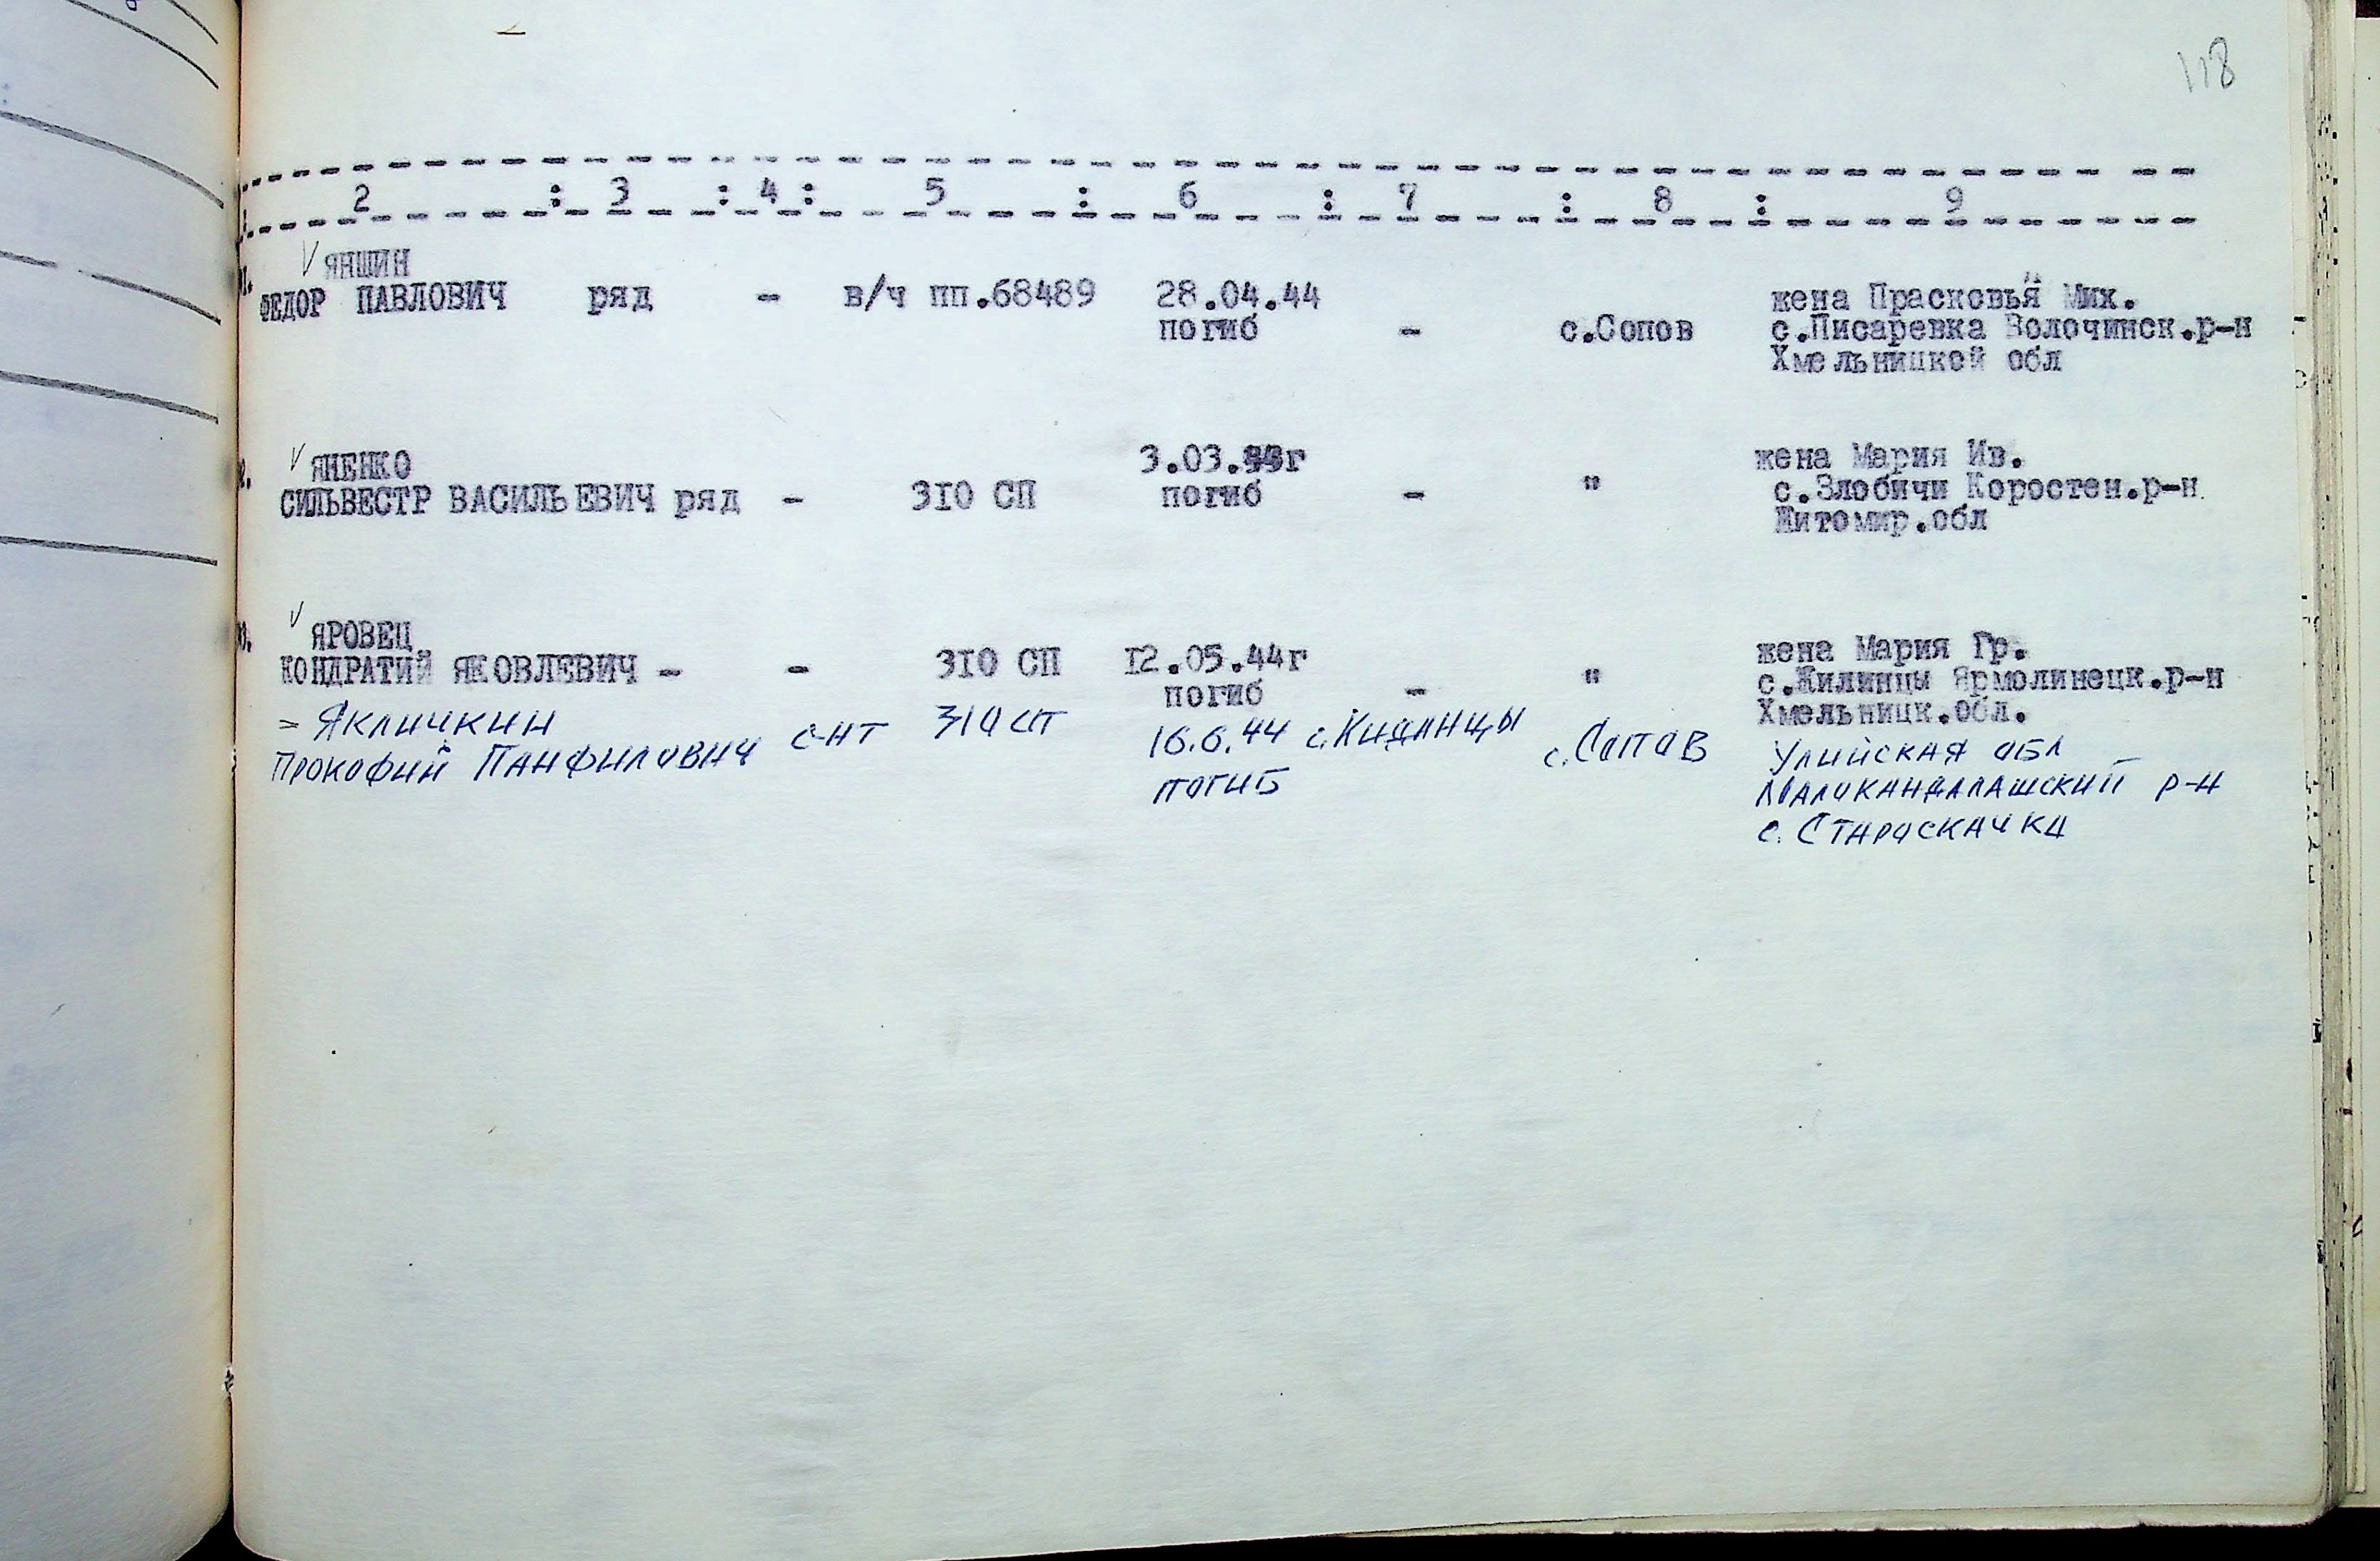 118
2 : 3 : 4 : 5 : 6 : 7 : 8 : 9
ЯНШИН
ФЕДОР ПАВЛОВИЧ ряд - в/ч пп.68489 28.04.44 жена Прасковья Мих.
погиб - с.Сопов с.Писаревка Волочинск.р-н
Хмельницкой обл
ЯНЕНКО 3.03.44г жена Мария Ив.
СИЛЬВЕСТР ВАСИЛЬЕВИЧ ряд - 310 СП погиб - " с.Злобичи Коростен.р-н
Житомир.обл
ЯРОВЕЦ жена Мария Гр.
КОНДРАТИЙ ЯКОВЛЕВИЧ - - 310 СП 12.05.44г с.Жилинцы Ярмолинецк.р-н
погиб - " Хмельницк.обл.
= Якличкин с-нт 310 сп 16.6.44 с.Киданцы с.Сопов Улийская обл
Прокофий Панфилович погиб Малокандалашский р-н
с. Стараскачка